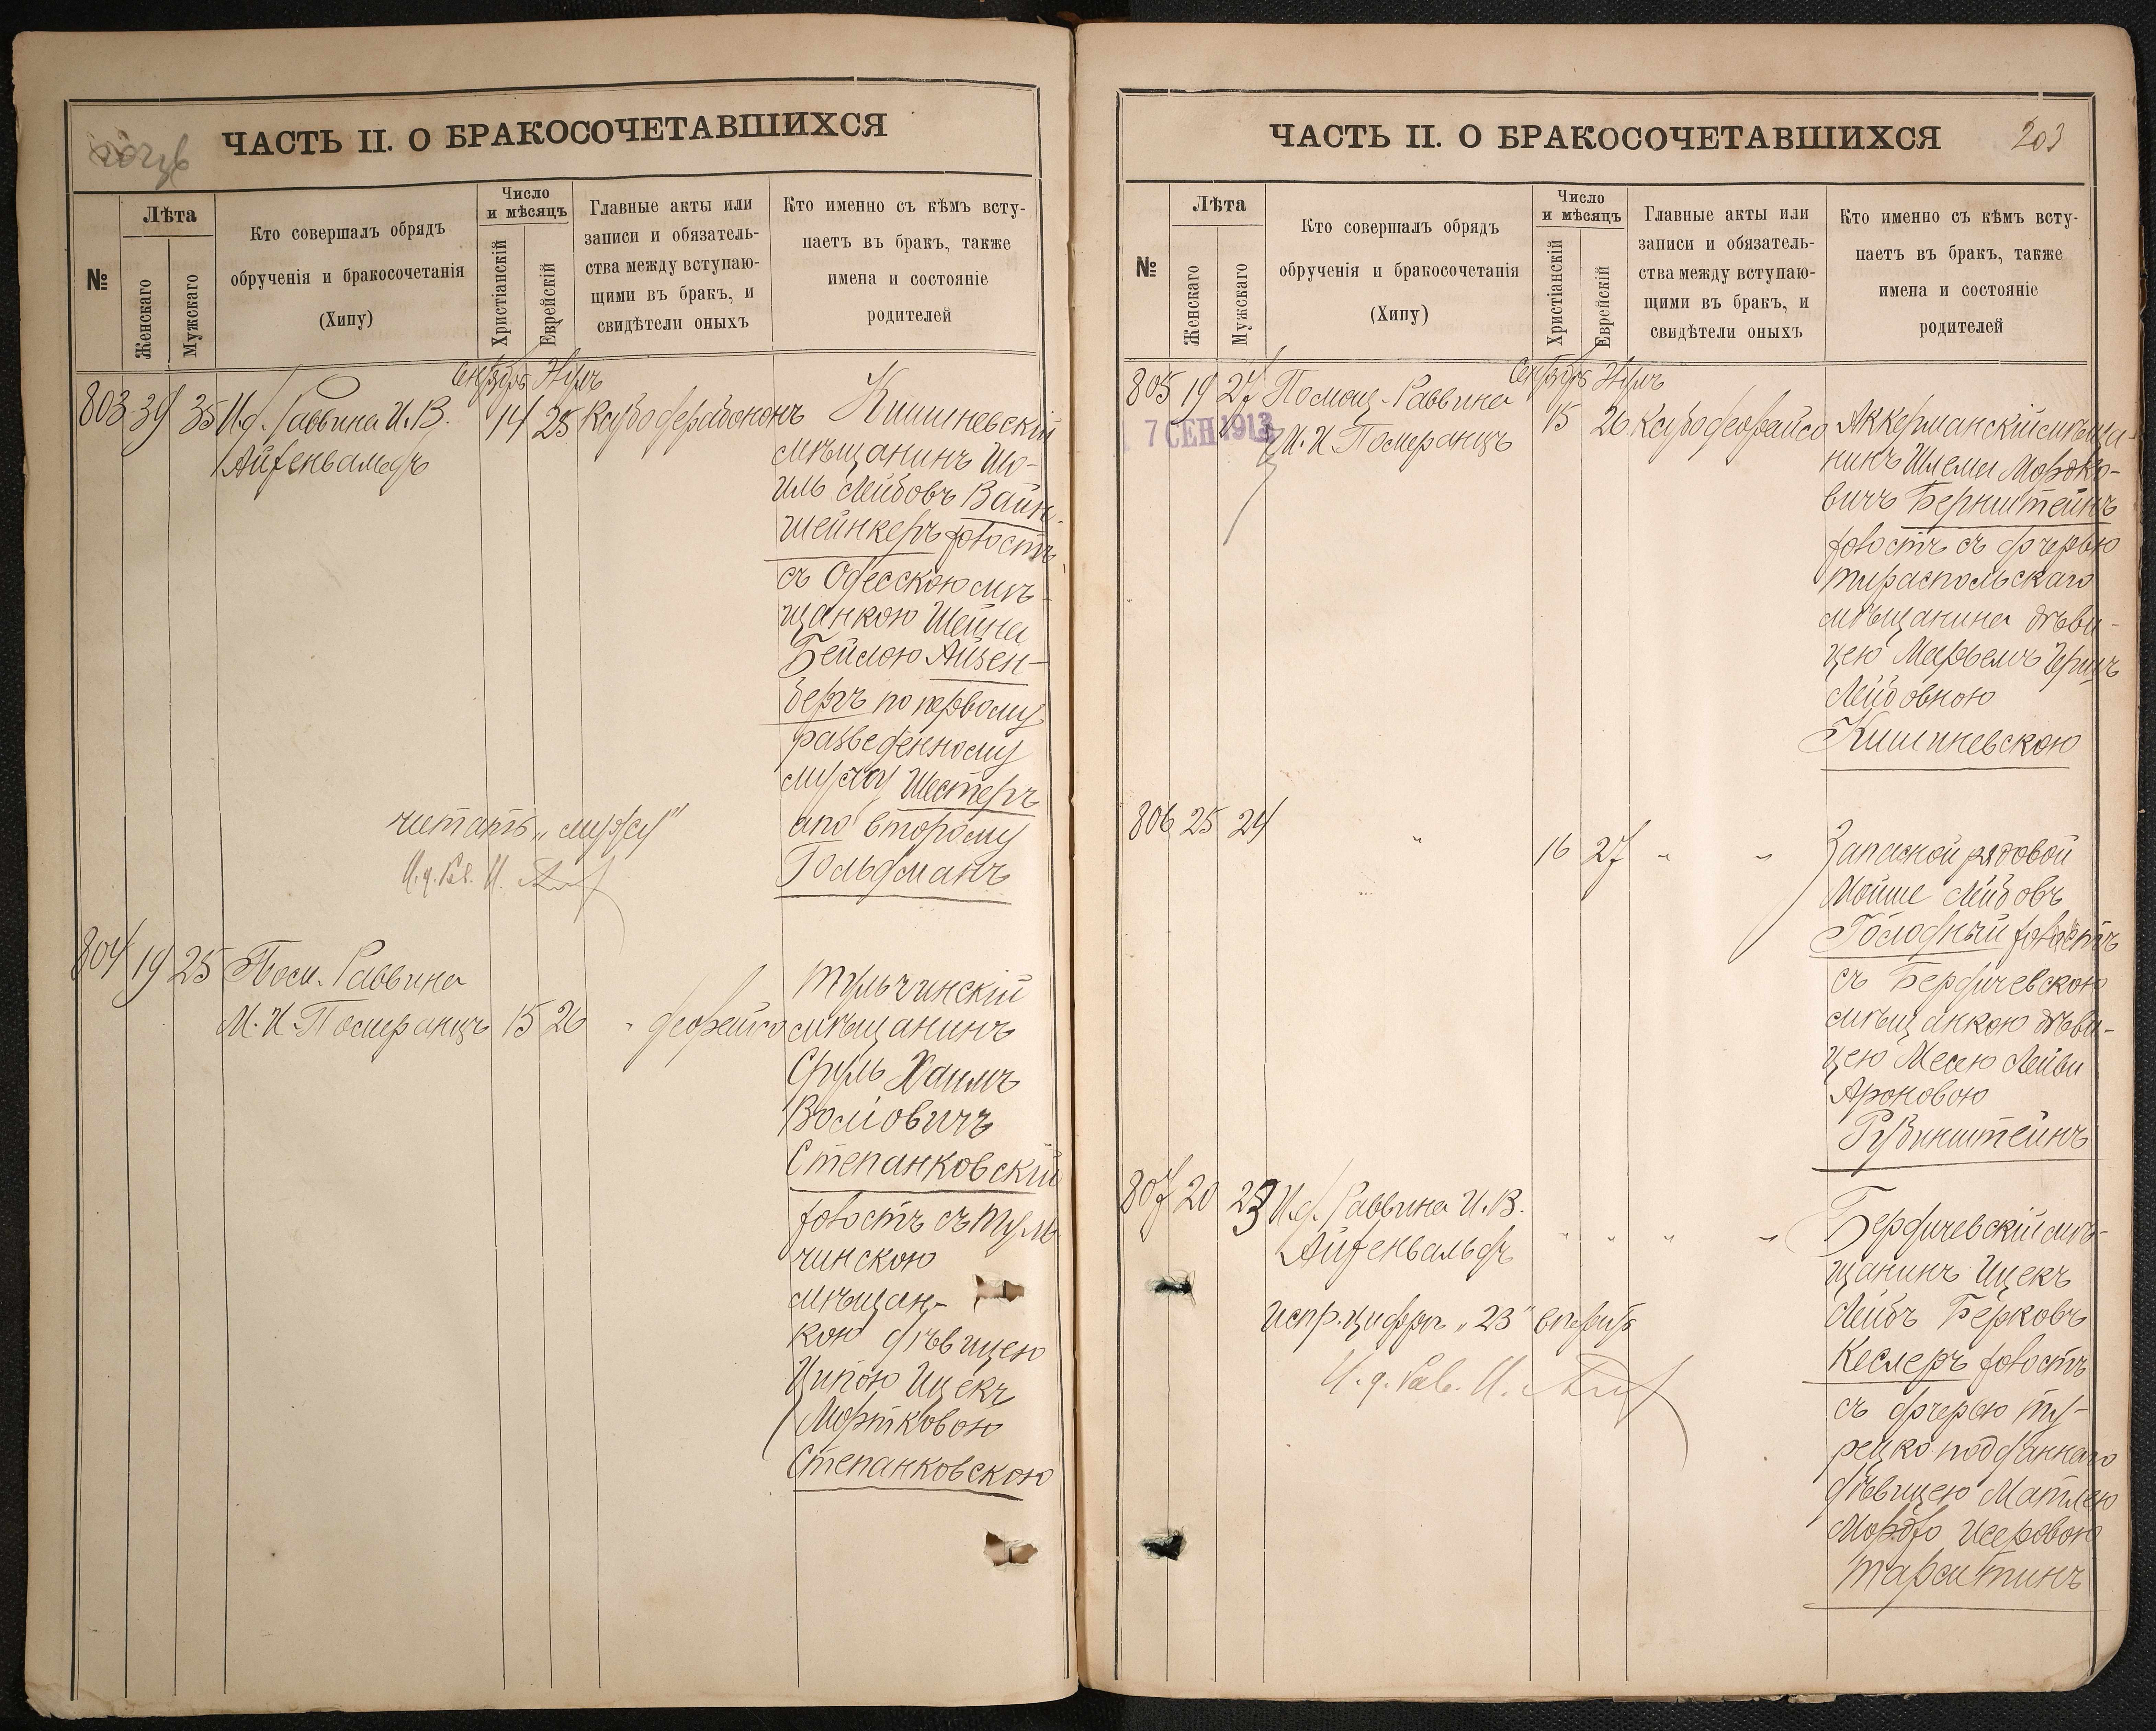 ЧАСТЬ II. О БРАКОСОЧЕТАВШИХСЯ
№
Лѣта
Женскаго
Мужскаго
Кто совершалъ обрядъ
обрученія и бракосочетанія
(Хипу)
Число
и мѣсяцъ
Христіанскій
Еврейскій
Главные акты или
записи и обязатель-
ства между вступаю-
щими въ бракъ, и
свидѣтели оныхъ
Кто именно съ кѣмъ всту-
паетъ въ бракъ, также
имена и состояніе
родителей
Сентябрь Элулъ
803 39 35 И.д. Раввина И.В. 14 25
Айзенвальдъ
Кишиневскій
мѣщанинъ Шо-
иль Лейбовъ Вайн-
шейнкеръ холостъ
съ Одесскою мѣ-
щанкою Шейна
Бейлою Айзен-
бергъ по первому
разведенному
мужу Шестеръ
а по второму
Гольдманъ
читать „мужу"
И.д. Рав. И.
804 19 25 Пом. Раввина
М.И Померанцъ 15 26
Тульчинскій
мѣщанинъ
Сруль Хаимъ
Волговичъ
Степанковскій
холостъ съ Туль-
чинскою
мѣщан-
кою дѣвицею
Ципою Ицекъ
Мортковою
Степанковскою
ЧАСТЬ II. О БРАКОСОЧЕТАВШИХСЯ
203
№
Лѣта
Женскаго
Мужскаго
Кто совершалъ обрядъ
обрученія и бракосочетанія
(Хипу)
Число
и мѣсяцъ
Христіанскій
Еврейскій
Главные акты или
записи и обязатель-
ства между вступаю-
щими въ бракъ, и
свидѣтели оныхъ
Кто именно съ кѣмъ всту-
паетъ въ бракъ, также
имена и состояніе
родителей
Сентябрь Элулъ
805 19 27 Помощ. Раввина
7 СЕН 1913
М.И Померанцъ 15 26
Аккерманскій мѣща-
нинъ Шлема Мордко-
вичъ Бернштейнъ
холостъ съ дочерью
тираспольскаго
мѣщанина дѣви-
цею Марьемъ Гершъ
Лейбовною
Кишиневскою
806 25 24 " 16 27 " "
Запасной рядовой
Мойше Лейбовъ
Голодный холостъ
съ Бердичевскою
мѣщанкою дѣви-
цею Месею Лейви
Ароновою
Рубинштейнъ
807 20 23 И.д. Раввина И.В.
Айзенвальдъ " " " "
Бердичевскій мѣ-
щанинъ Ицекъ
Лейбъ Берковъ
Кеслеръ холостъ
съ дочерью ту-
рецко подданнаго
дѣвицею Матлею
Мордко Исеровою
испр. цифръ „23"
И.д. Рав. И.